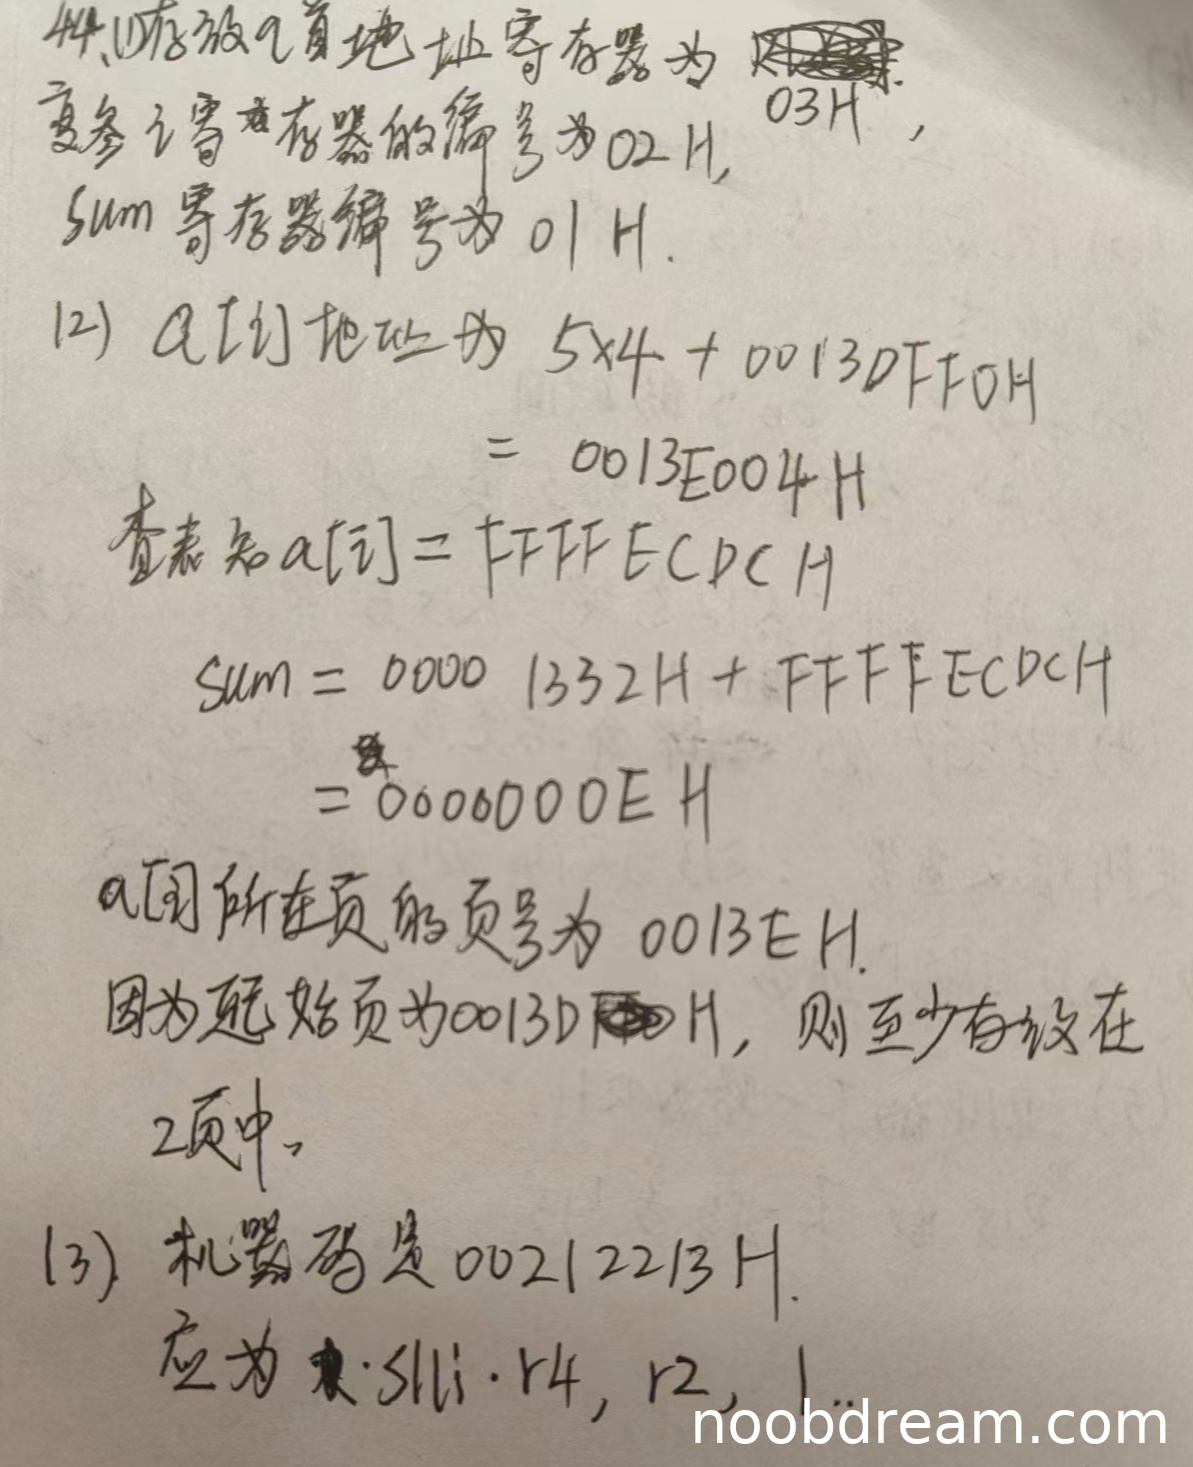 44.(1)存放a首地址寄存器为
03H,
变参i寄存器的编号为02H,
sum寄存器编号为01H.
(2) a[i]地址为 5×4 + 0013DFF0H
= 0013E004H
查表知a[i] = FFFFECDCH
sum = 0000 1332H + FFFFECDCH
= 0000000EH
a[i]所在页的页号为 0013EH.
因为起始页为0013DH, 则至少存放在
2页中。
(3). 机器码是00212213H.
应为 slli r4, r2, 1..
noobdream.com